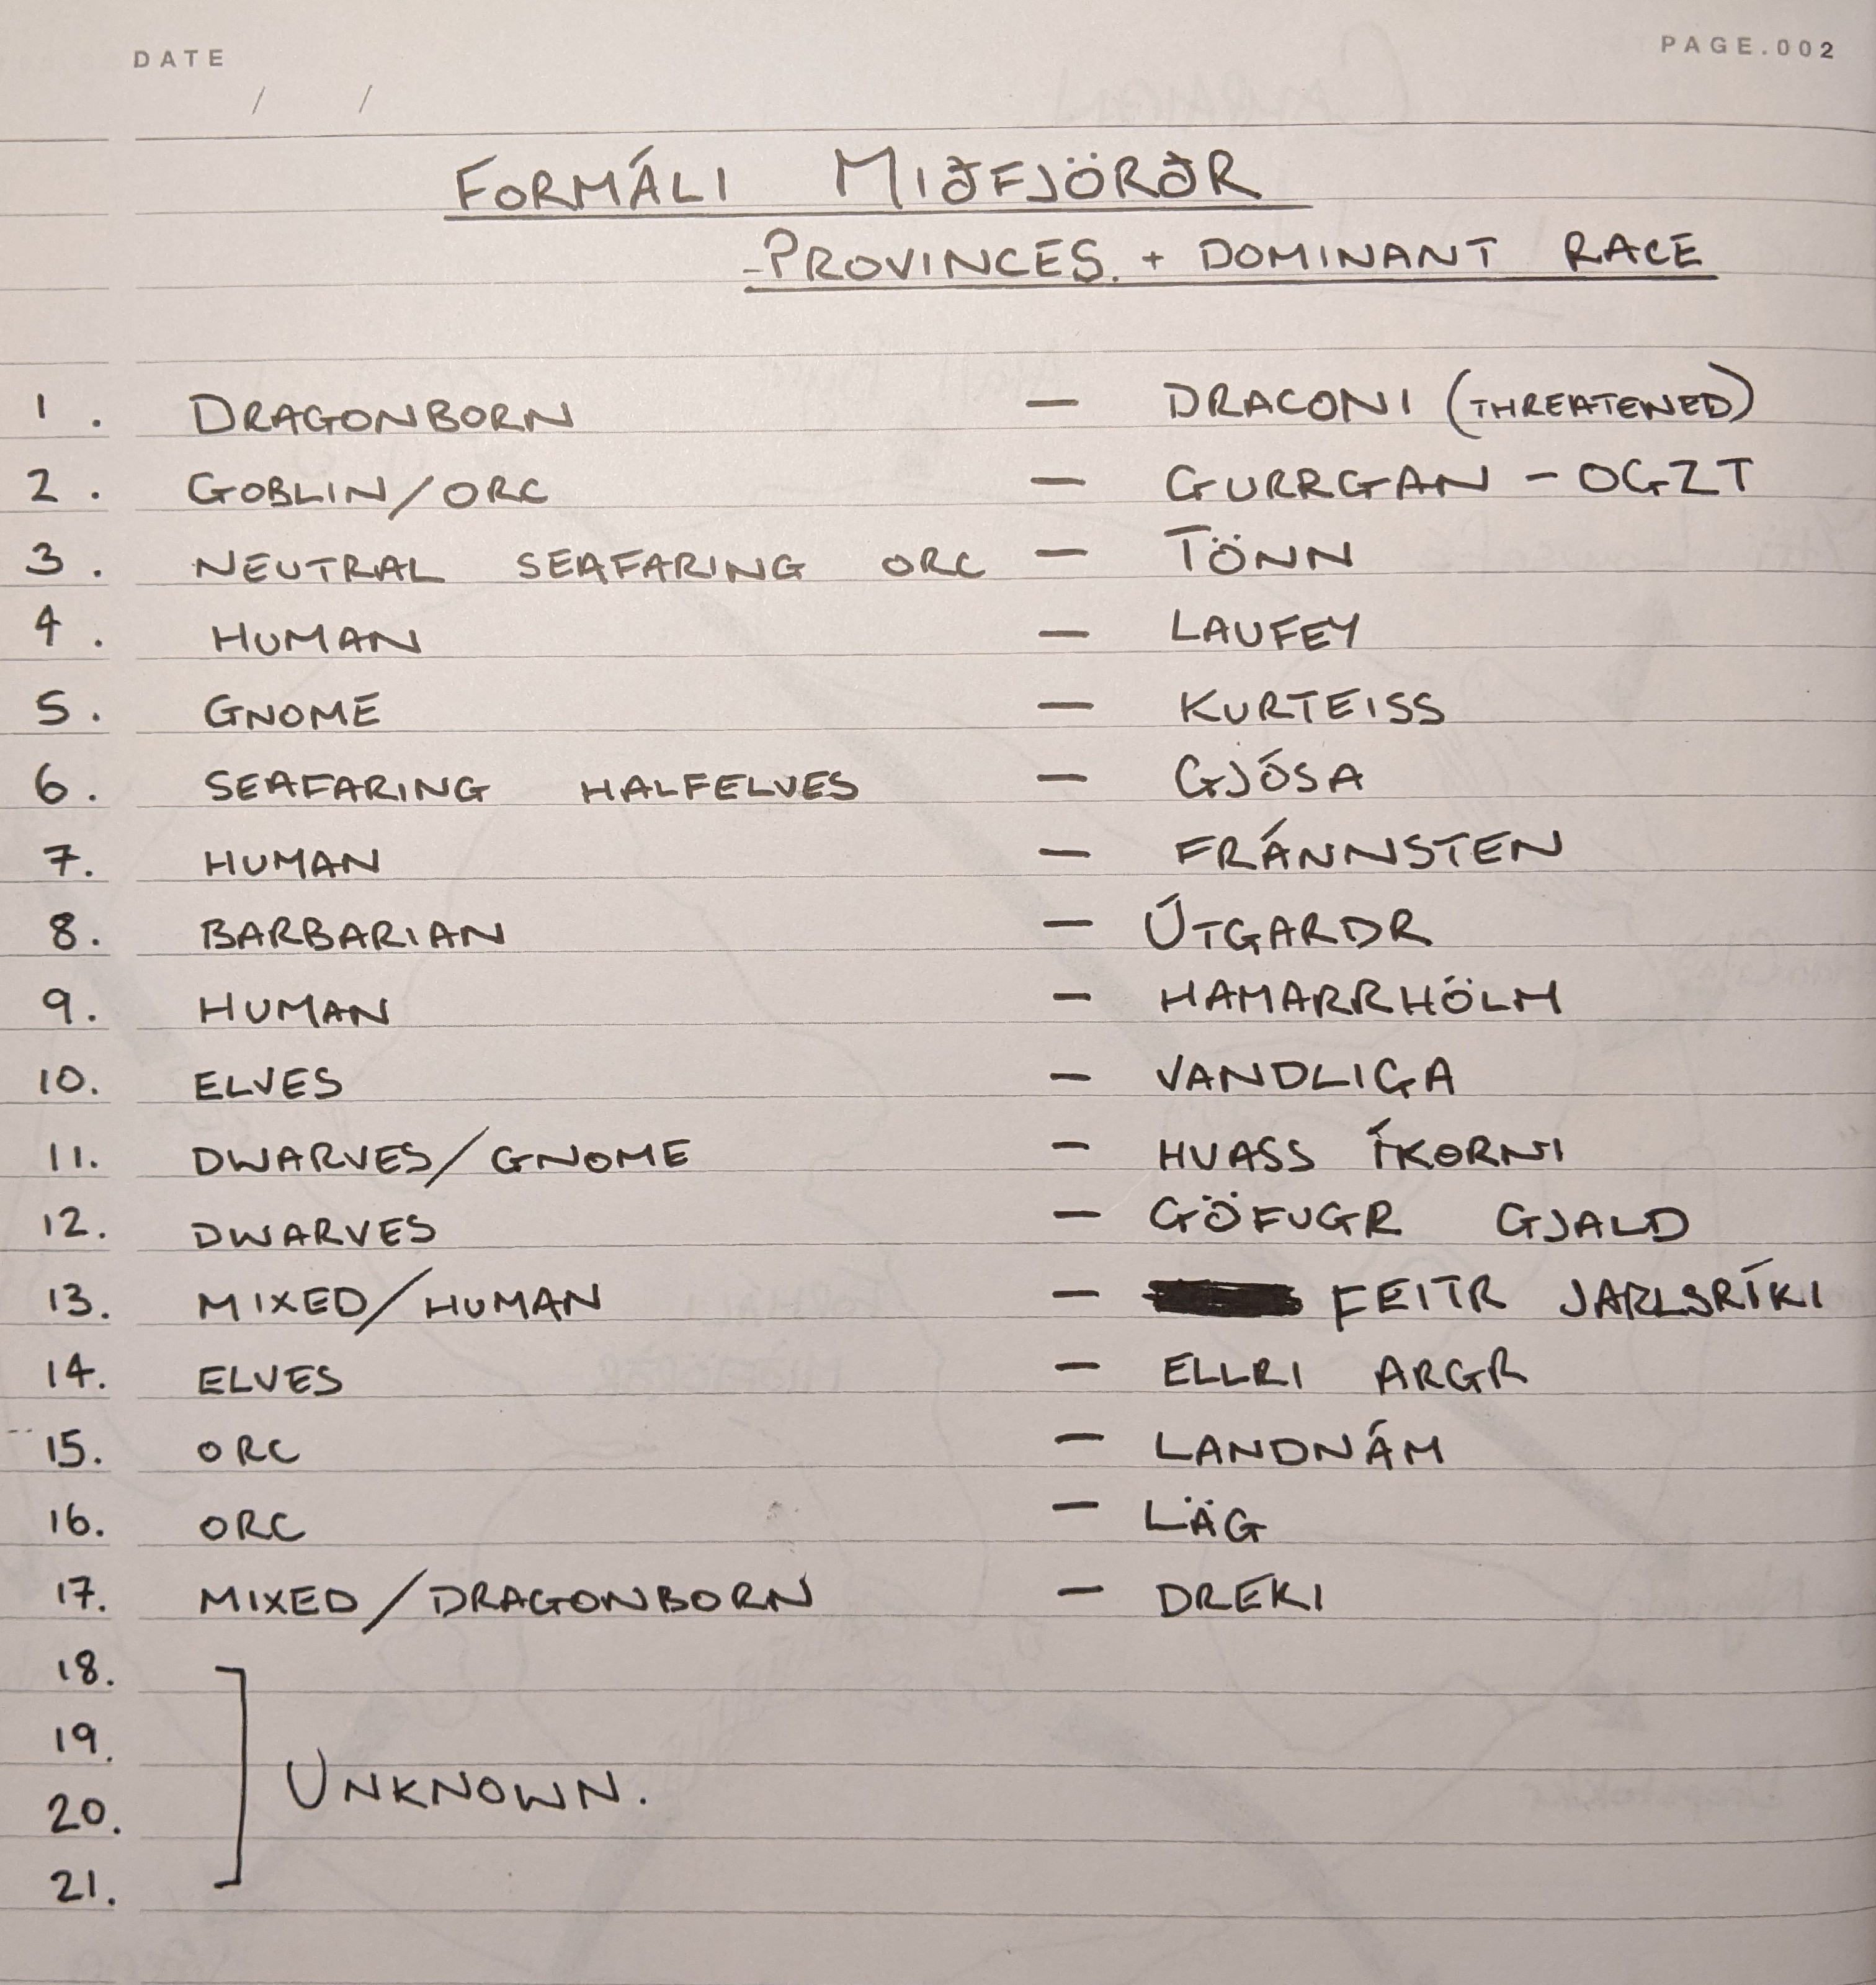 DATE
PAGE.002
/ /
FORMÁLI MIÐFJÖRÐR
-PROVINCES. + DOMINANT RACE
1. DRAGONBORN — DRACONI (THREATENED)
2. GOBLIN/ORC — GURRGAN - OGZT
3. NEUTRAL SEAFARING ORC — TÖNN
4. HUMAN — LAUFEY
5. GNOME — KURTEISS
6. SEAFARING HALFELVES — GJÓSA
7. HUMAN — FRÁNNSTEN
8. BARBARIAN — ÚTGARDR
9. HUMAN — HAMARRHÖLM
10. ELVES — VANDLIGA
11. DWARVES/GNOME — HVASS ÍKORNI
12. DWARVES — GÖFUGR GJALD
13. MIXED/HUMAN — FEITR JARLSRÍKI
14. ELVES — ELLRI ARGR
15. ORC — LANDNÁM
16. ORC — LÄG
17. MIXED/DRAGONBORN — DREKI
18.
19.
UNKNOWN.
20.
21.